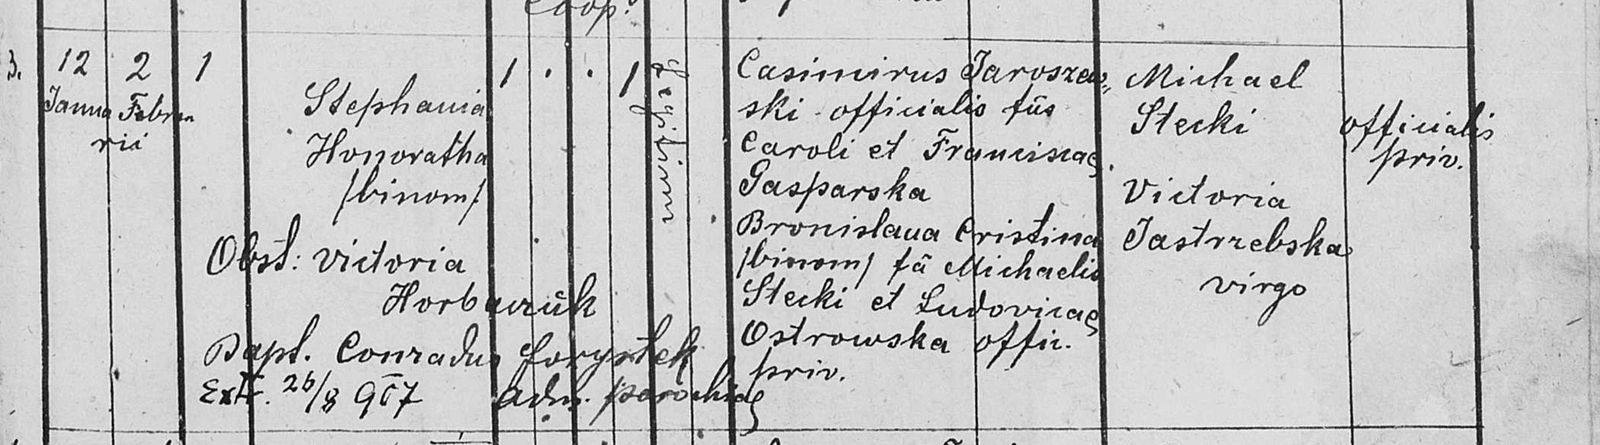 Coop.
3. 12 2 1
Januarii Februarii
Stephania
Honoratha
/binom/
1 . . 1
Legitimum
Obst: Victoria
Horbaczuk
Bapt. Conradus Forystek
Extr. 26/8 907 Adm. parochiae
Casimirus Jaroszew„
ski officialis fiis
Caroli et Franciscae
Gasparska
Bronislava Cristina
/binom/ fa Michaelis
Stecki et Ludovicae
Ostrowska offic.
priv.
Michael
Stecki officialis
priv.
Victoria
Jastrzebska
virgo